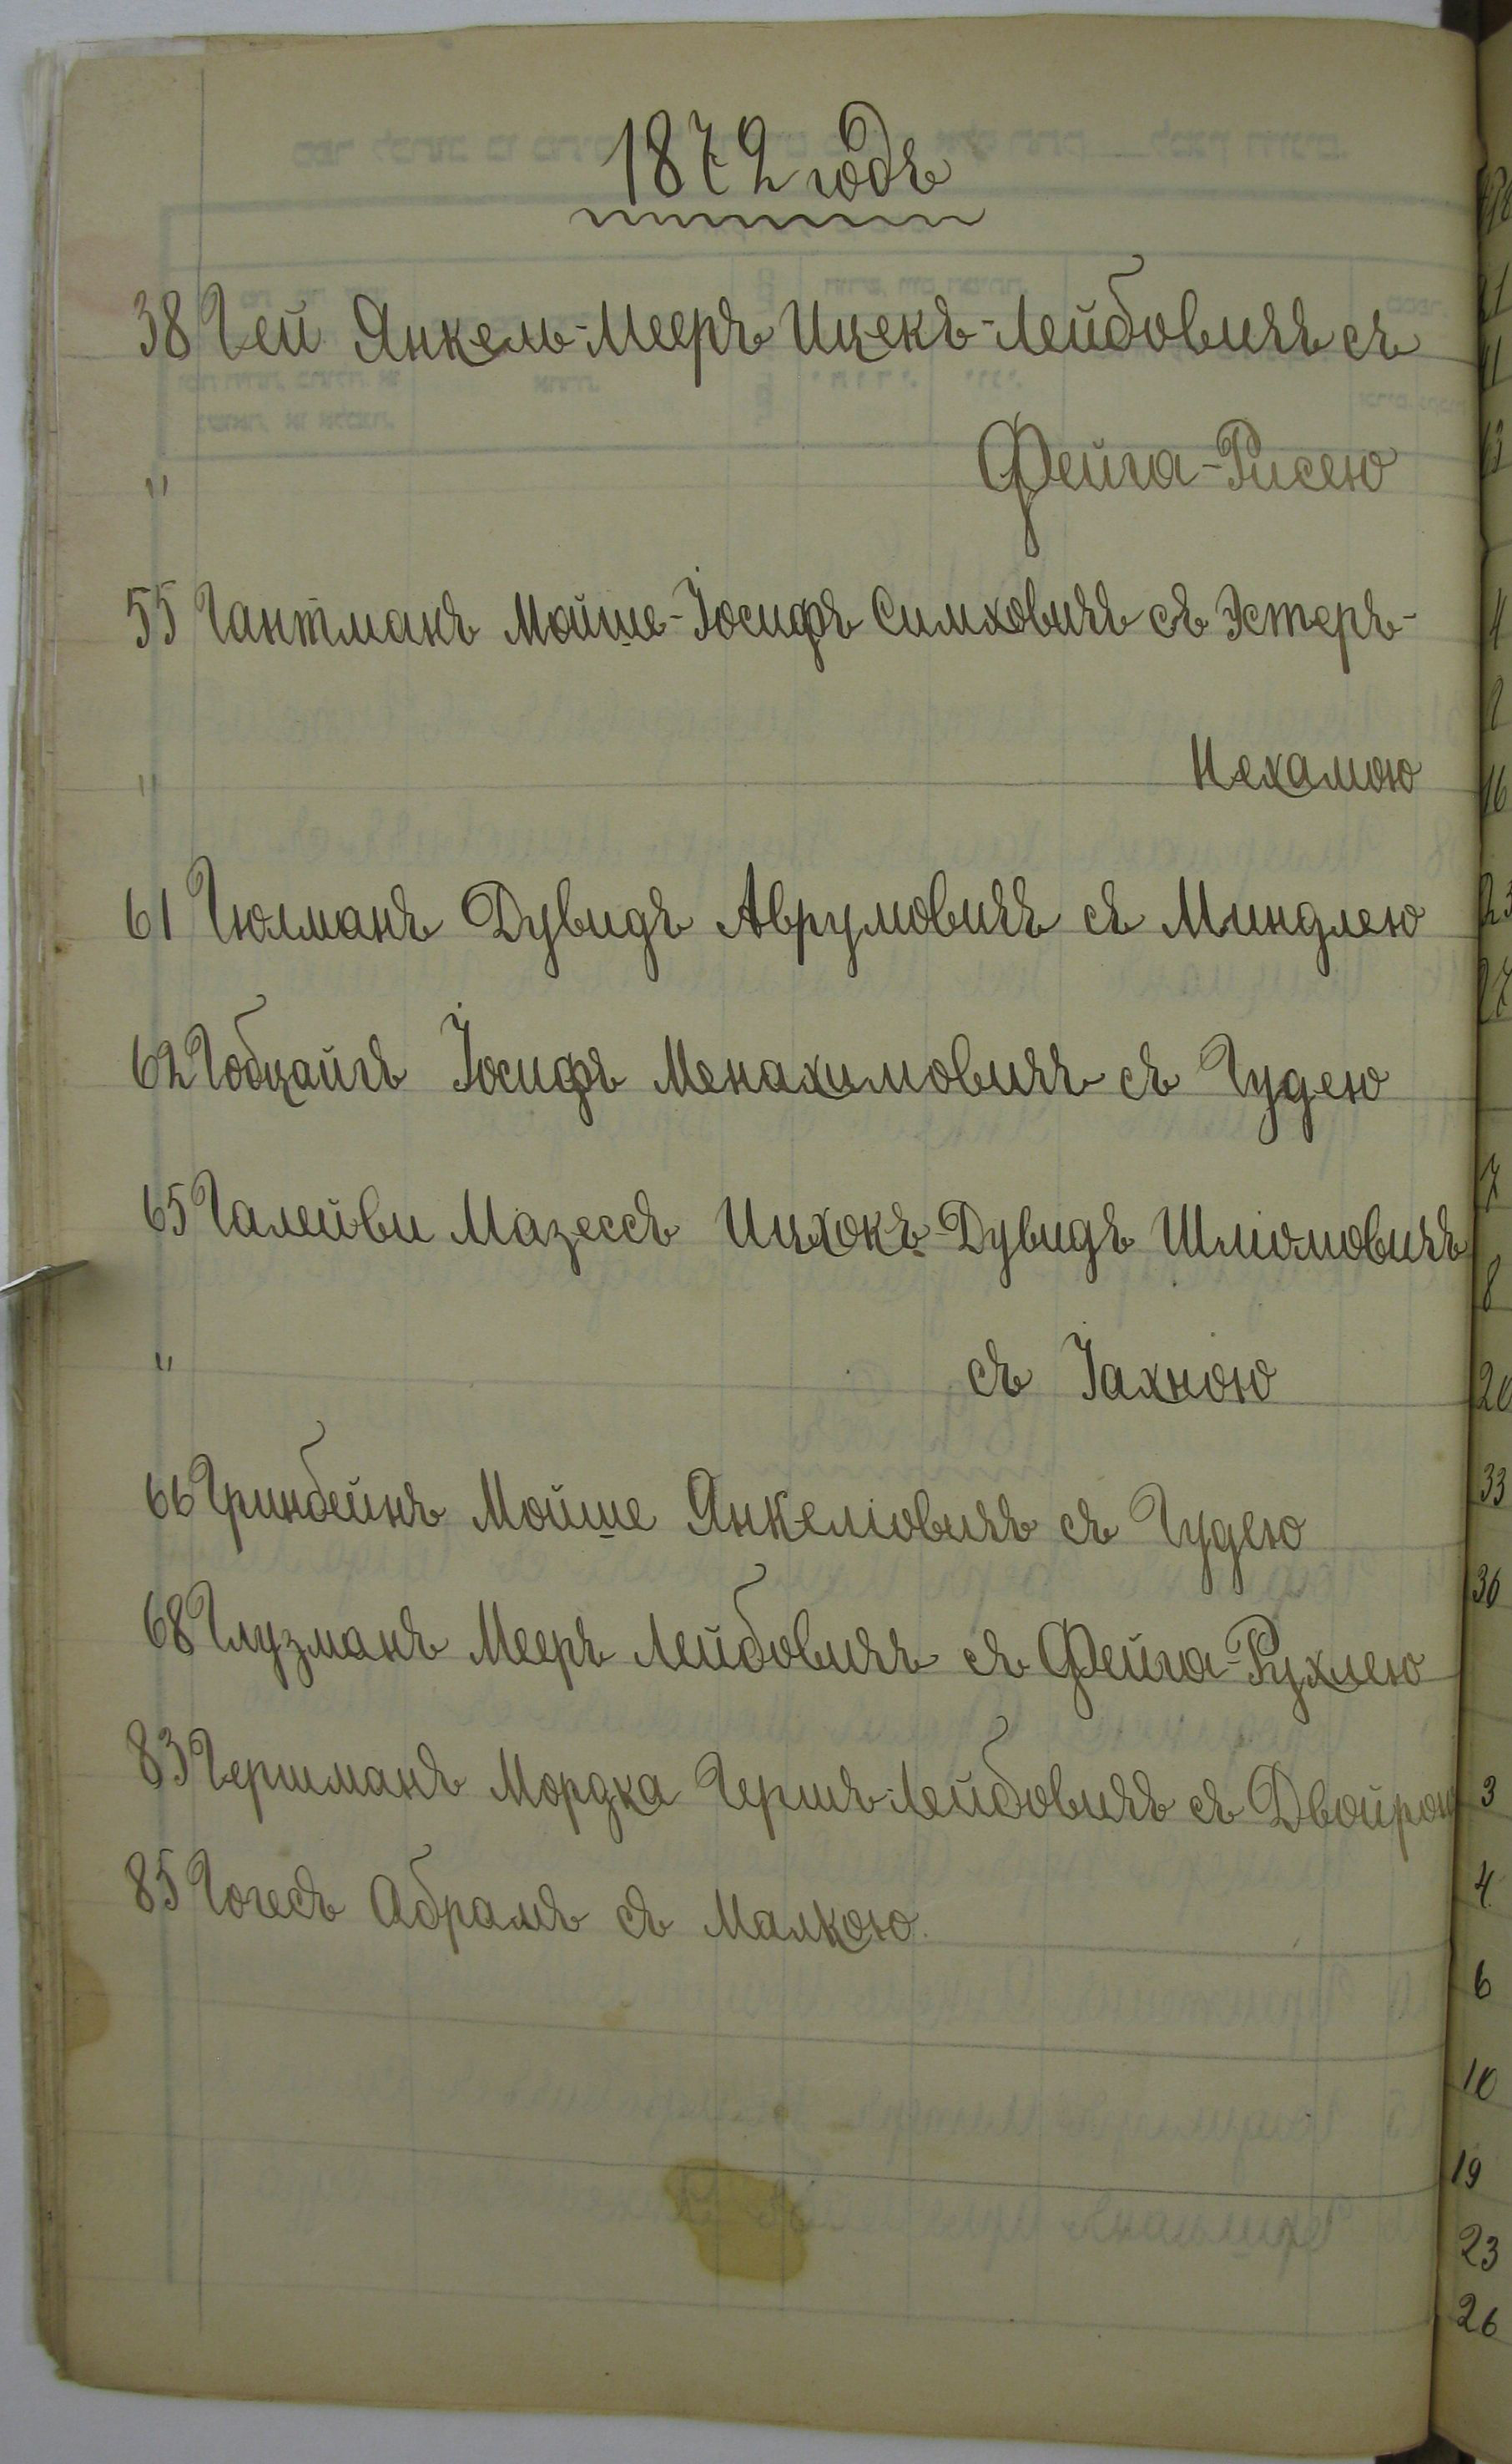 1872 годъ
38 Гей Янкель-Мееръ Ицекъ-Лейбовичъ съ
" Фейга-Рисею
55 Гантманъ Мойше-Іосифъ Симховичъ съ Эстеръ-
" Нехамою
61 Гюлманъ Дувидъ Аврумовичъ съ Миндлею
62 Гобзайгъ Іосифъ Менахимовичъ съ Гудею
65 Галейви Мазессъ Ицхокъ-Дувидъ Шліомовичъ
" съ Іахною
66 Гринбейнъ Мойше Янкеліовичъ съ Гудею
68 Глузманъ Мееръ Лейбовичъ съ Фейга-Рухлею
83 Гершманъ Мордка Гершъ-Лейбовичъ съ Двойрою
85 Гогесъ Абрамъ съ Малкою.
20
33
36
3
4
6
10
19
23
26